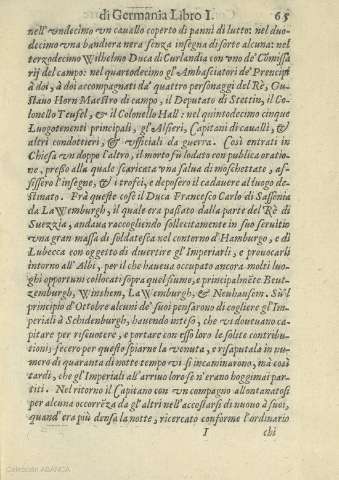 di Germania Libro I. 65
nell'vndecimo vn cauallo coperto di panni di lutto: nel duo-
decimo vna bandiera nera senza insegna di sorte alcuna: nel
terzodecimo Wilhelmo Duca di Curlandia con vno de' Cōmissa
rij del campo: nel quartodecimo gl'Ambasciatori de' Prencipi
à doi, à doi accompagnati da' quattro personaggi del Rè, Gu-
stauo Horn Maestro di campo, il Deputato di Stettin, il Co-
lonello Teufel, & il Colonello Hall: nel quintodecimo cinque
Luogotenenti principali, gl'Alfieri, Capitani di caualli, &
altri condottieri, & vfficiali da guerra. Così entrati in
Chiesa vn doppo l'altro, il morto fù lodato con publica oratio
ne, presso alla quale scaricata vna salua di moschettate, af-
fissero l'insegne, & i trofei, e deposero il cadauere al luogo de-
stinato. Frà queste cose il Duca Francesco Carlo di Sassonia
da LaWemburgh, il quale era passato dalla parte del Rè di
Suezzia, andaua raccogliendo sollecitamente in suo seruitio
vna gran massa di soldatesca nel contorno d'Hamburgo, e di
Lubecca con oggetto di duertire gl'Imperiali, e prouocarli
intorno all'Albi, per il che haueua occupato ancora molti luo-
ghi opportuni collocati sopra quel fiume, e principalmēte Beut-
zemburgh, Winshem, LaWemburgh, & Neuhausem. Sù'l
principio d'Ottobre alcuni de' suoi pensarono di cogliere gl'Im
periali à Schidenburgh, hauendo inteso, che vi doueuano ca-
pitare per riscuotere, e portare con esso loro le solite contribu-
tioni; fecero per questo spiarne la venuta, e risaputala in nu-
mero di quaranta di notte tempo vi si incaminarono, mà così
tardi, che gl'Imperiali all'arriuo loro se n'erano hoggimai par-
titi. Nel ritorno il Capitano con vn compagno allontanatosi
per alcuna occorrēza da gl'altri nell'accostarsi di nuouo à suoi,
quand'era più densa la notte, ricercato conforme l'ordinario
I chi
Colección ABANCA